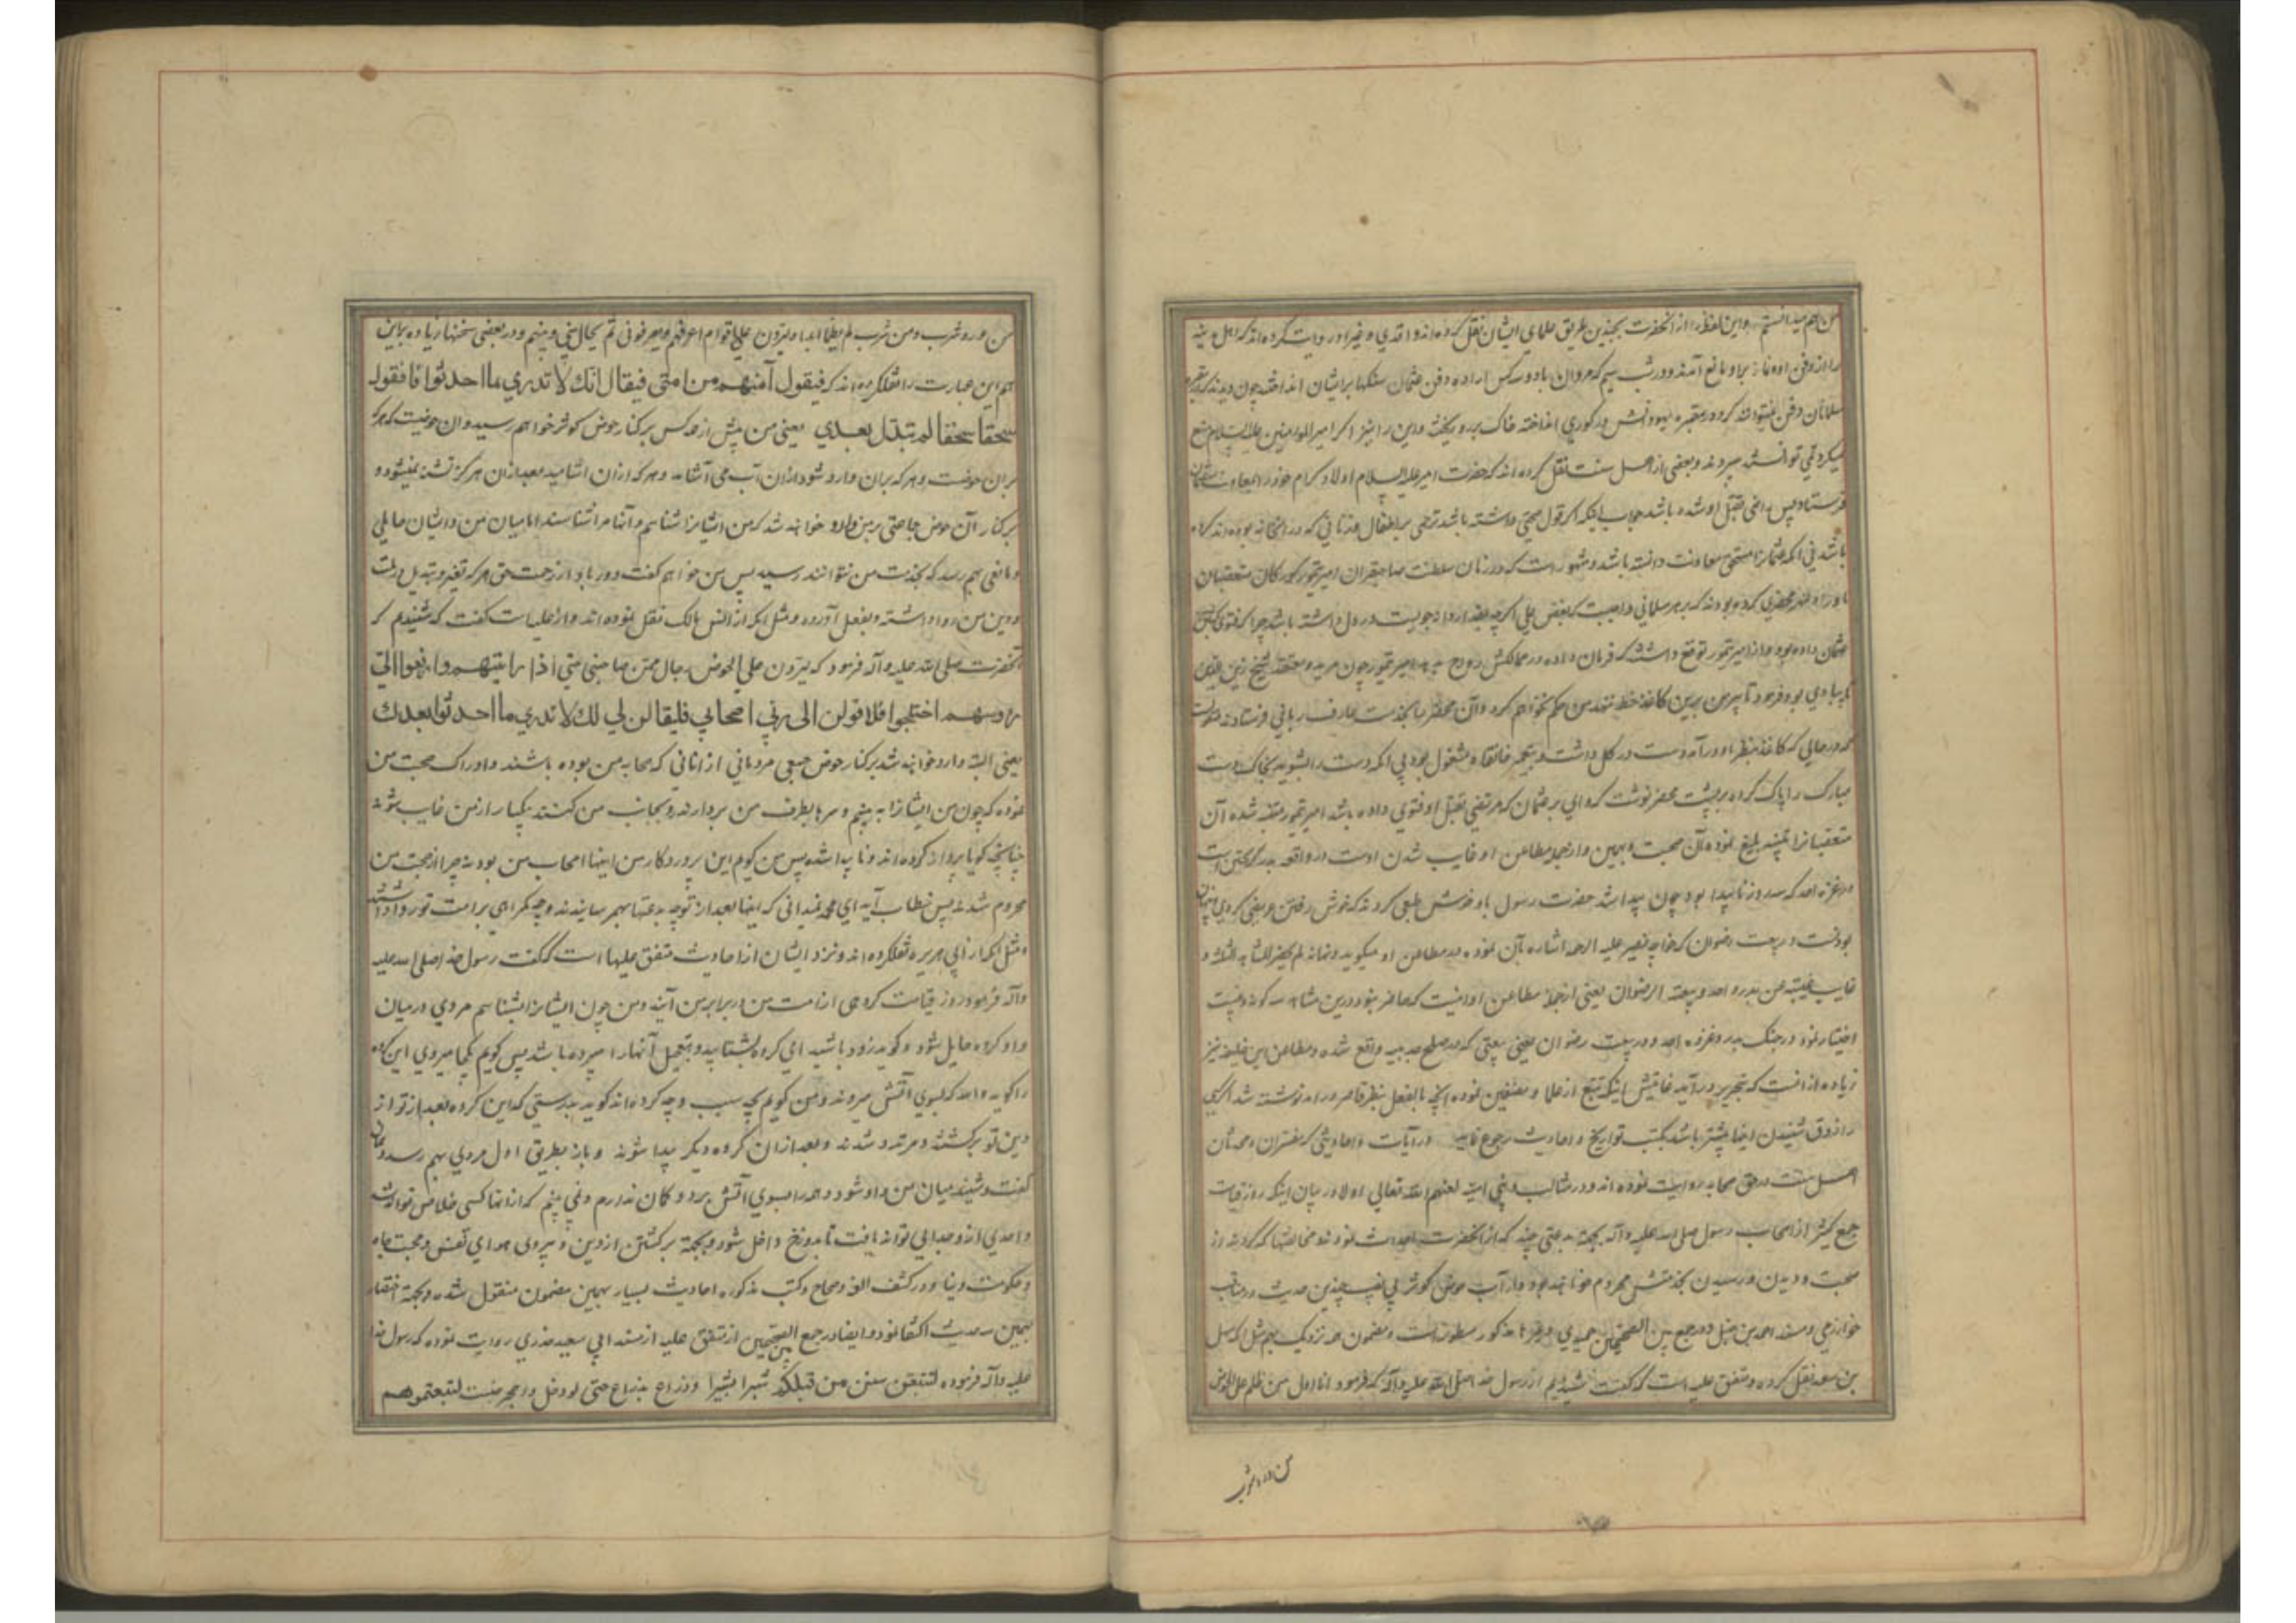 من هم میدانستم و این لفظ را از آنحضرت بچندین طریق علمای ایشان نقل کرده‌اند و اقدی و غیر او روایت کرده‌اند که اهل مدینه
را از دفن او و نماز بر او مانع آمدند و در شب سیم که مروان با دو سه کس اراده دفن عثمان سنگها بر ایشان انداختند چون دیدند که در مقبره
مسلمانان دفن نمیتوانند کرد در مقبره یهود در کوری انداخته خاک برو ریختند و این را نیز اگر امیر المؤمنین علیه السلام منع
میکرد نمی توانستند و بعضی از اهل سنت نقل کرده اند که حضرت امیر علیه السلام اولاد کرام خود را بمعاونت عثمان
فرستاد پس راضی بقتل او نشده باشد جواب اینکه اگر این قول صحتی داشته باشد ترحمی بر اطفال و زنانی که در آنخانه بوده اند کرده
باشد نی آنکه عثمان را مستحق معاونت دانسته باشد و مشهور است که در زمان سلطنت صاحبقران امیر تیمور کورکان متعصبان
ماوراء النهر محضری کرده بودند که بر هر مسلمانی واجبست که بغض علی اگرچه بقدر جویست در دل داشته باشد چرا که فتوی بقتل
عثمان داده بود و از امیر تیمور توقع داشتند که فرمان داده در ممالکش رواج بدهد امیر تیمور چون مرید و معتقد شیخ زین الدین
بود فرمود تا پیر من برین کاغذ خط ننهد من حکم نخواهم کرد و آن محضر را بخدمت عارف ربانی فرستادند
که در حالی که کاغذ بنظر او درآمد دست در کل داشت و بتعمیر خانقاه مشغول بود بی آنکه دست را بشوید بخاک دست
مبارک را پاک کرده بر پشت محضر نوشت که وای بر عثمان که مرتضی بقتل او فتوی داده باشد امیر تیمور متنبه شده آن
متعصبانرا تنبیه بلیغ نموده آن صحبت و همین و از جمله مطاعن او غایب شدن اوست در واقعه بدر گریختن است
در غزه احد که سه روز ناپیدا بود چون پیدا شد حضرت رسول با و خوش طبعی کرد که خوش رفتن عریضی کردی
نبودنست در بیعت رضوان که خواجه نصیر علیه الرحمه اشاره بآن نموده در مطاعن او میگوید و نمانه لم یحضر المشاهد الثلاثه و
غایب غیبته عن بدر و احد و بیعته الرضوان یعنی از جمله مطاعن او اینست که حاضر نبود درین مشاهد سه گونه و غیبت
اختیار نمود در جنگ بدر و غزوه احد و در بیعت رضوان یعنی بیعتی که در صلح حدیبیه واقع شده و مطاعن این خلیفه نیز
زیاده از آنست که بتحریر درآید غایتش اینکه تتبع از علما و مصنفین نموده آنچه بالفعل بنظر قاصر درآمد نوشته شد اگر کسی
را ذوق شنیدن اینها بیشتر باشد بکتب تواریخ و احادیث رجوع نماید در آیات و احادیثی که مفسران و محدثان
اهل سنت در حق صحابه روایت نموده اند و در مثالب بنی امیه لعنهم الله تعالی اولا در بیان اینکه روز قیامت
جمع کثیر از اصحاب رسول صلی الله علیه و آله بجهة بدعتی چند که از آنحضرت احداث نمودند و مخالفتها که کردند از
صحبت و دیدن و رسیدن بخدمتش محروم خواهند بود و از آب حوض کوثر بی نصیب چندین حدیث در مناقب
خوارزمی و مسند احمد بن حنبل و در جمع بین الصحیحین حمیدی و غیرها مذکور مسطور است و مضمون همه نزدیک بهم مثل آنکه سهل
بن سعد نقل کرده و متفق علیه است که گفت شنیدم از رسول خدا صلی الله علیه و آله که فرمود انا اول من علی الحوض
من ورد شرب
من ورد شرب و من شرب لم یظما ابدا و لیردن علی اقوام اعرفهم و یعرفونی ثم یحال بینی و بینهم و در بعضی نسخها زیاده براین
هم این عبارت را نقلکرده اند که فیقول أمنهم من امتی فیقال انک لا تدری ما احدثوا فاقول
سحقا سحقا لمن تبدل بعدی یعنی من پیش از همه کس بر کنار حوض کوثر خواهم رسید و آن حوضیست که هر که
بران حوضست و هر که بران وارد شود ازان آب می آشامد و هر که ازان آشامید بعد ازان هرگز تشنه نمیشود و
بر کنار آن حوض جماعتی بر من وارد خواهند شد که من ایشانرا شناسم و آنها مرا شناسند اما میان من و ایشان حایلی
و مانعی بهم رسد که بخدمت من نتوانند رسید پس من خواهم گفت دور باد از رحمت حق هر که تغیر و تبدیل در ملت
و دین من روا داشته و بفعل آورده و مثل آنکه از انس بن مالک نقل نموده اند و از جلیاست گفت که شنیدم که
آنحضرت صلی الله علیه و آله فرمود که لیردن علی الحوض رجال ممن صاحبنی حتی اذا رایتهم و ارفعوا الی
رؤسهم اختلجوا فلا قولن ای ربی اصحابی فلیقالن لی انک لا تدری ما احدثوا بعدک
یعنی البته وارد خواهند شد بر کنار حوض جمعی مردمانی از آنانی که صحابه من بوده باشند و ادراک صحبت من
نموده که چون من ایشانرا به بینم و سرها بطرف من بردارند و بجانب من کنند یکبار از من غایب شوند
چنانچه گویا پرواز کرده اند و ناپیدا شده پس من گویم ای پروردگار من اینها اصحاب من بودند چرا از صحبت من
محروم شدند پس خطاب آید ای محمد نمیدانی که اینها بعد از تو چه بدعتها بهم رسانیدند و چه گمراهی برامت تو روا داشتند
و مثل آنکه از ابی هریره نقلکرده اند و نزد ایشان از احادیث متفق علیها است که گفت رسول خدا صلی الله علیه
و آله فرمود روز قیامت گروهی از امت من در برابر من آیند و من چون ایشانرا بشناسم مردی در میان
و او گروه حایل شود و گوید زود باشید ای گروه بشتابید و بتعجیل آنهارا میبرده باشد پس گویم کجا میروی این گروه
را گوید والله که بسوی آتش میروند و من گویم بچه سبب و چه کرده اند گوید بدرستی که این گروه بعد از تو از
دین تو برگشتند و مرتد شدند و بعد ازان گروه دیگر پیدا شوند و باز بطریق اول مردی بهم رسد و همان
گفت و شنید میان من و او شود و همه را بسوی آتش برد و گمان ندارم و نمی بینم که از آنها کسی خلاص تواند شد
و احدی از و جدایی تواند یافت تا بدوزخ داخل شود و بجهة برگشتن از دین و پیروی هوای نفس و محبت جاه
و حکومت دنیا و در کشف الغمه و صحاح و کتب مذکوره احادیث بسیار بهمین مضمون منقول شده و بجهة اختصار
بهمین سه حدیث اکتفا نمود و ایضا در جمع بین الصحیحین از متفق علیه از مسند ابی سعید خدری روایت نموده که رسول خدا
علیه و آله فرموده لتتبعن سنن من قبلکم شبرا بشبرا و ذراع بذراع حتی لو دخل لتبعتموهم